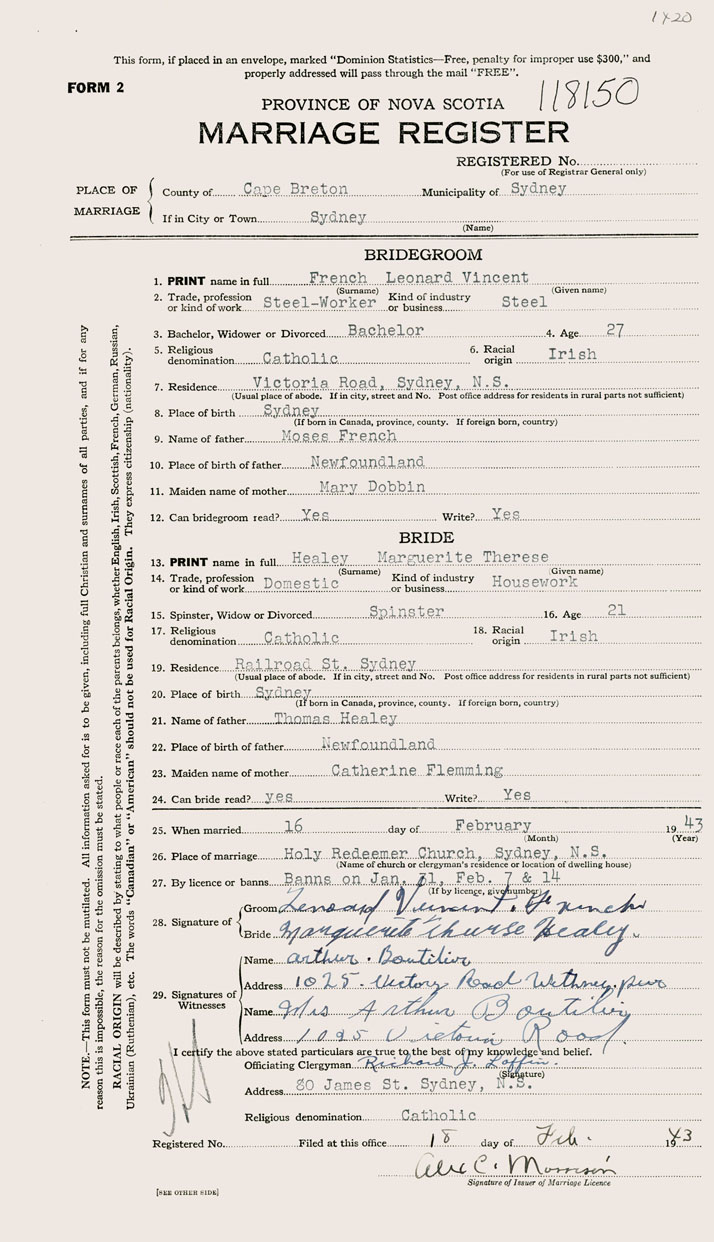 1420
This form, if placed in an envelope, marked "Dominion Statistics—Free, penalty for improper use $300," and
properly addressed will pass through the mail "FREE".
FORM 2
PROVINCE OF NOVA SCOTIA 118150
MARRIAGE REGISTER
REGISTERED No.
(For use of Registrar General only)
PLACE OF MARRIAGE
County of Cape Breton Municipality of Sydney
If in City or Town Sydney
(Name)
BRIDEGROOM
1. PRINT name in full French Leonard Vincent
(Surname) (Given name)
2. Trade, profession or kind of work Steel-Worker Kind of industry or business Steel
3. Bachelor, Widower or Divorced Bachelor 4. Age 27
5. Religious denomination Catholic 6. Racial origin Irish
7. Residence Victoria Road, Sydney, N.S.
(Usual place of abode. If in city, street and No. Post office address for residents in rural parts not sufficient)
8. Place of birth Sydney
(If born in Canada, province, county. If foreign born, country)
9. Name of father Moses French
10. Place of birth of father Newfoundland
11. Maiden name of mother Mary Dobbin
12. Can bridegroom read? Yes Write? Yes
BRIDE
13. PRINT name in full Healey Marguerite Therese
(Surname) (Given name)
14. Trade, profession or kind of work Domestic Kind of industry or business Housework
15. Spinster, Widow or Divorced Spinster 16. Age 21
17. Religious denomination Catholic 18. Racial origin Irish
19. Residence Railroad St. Sydney
(Usual place of abode. If in city, street and No. Post office address for residents in rural parts not sufficient)
20. Place of birth Sydney
(If born in Canada, province, county. If foreign born, country)
21. Name of father Thomas Healey
22. Place of birth of father Newfoundland
23. Maiden name of mother Catherine Flemming
24. Can bride read? yes Write? Yes
25. When married 16 day of February 1943
(Month) (Year)
26. Place of marriage Holy Redeemer Church, Sydney, N.S.
(Name of church or clergyman's residence or location of dwelling house)
27. By licence or banns Banns on Jan. 31, Feb. 7 & 14
(If by licence, give number)
28. Signature of
Groom Leonard Vincent French
Bride Marguerite Therese Healey.
29. Signatures of Witnesses
Name Arthur Boutilier
Address 1025 Victory Road Whitney Pier
Name Mrs Arthur Boutilier
Address 1025 Victoria Road
I certify the above stated particulars are true to the best of my knowledge and belief.
Officiating Clergyman Richard J. Laffin
(Signature)
Address 80 James St. Sydney, N.S.
Religious denomination Catholic
Registered No. Filed at this office 18 day of Feb. 1943
Alex C. Morrison
Signature of Issuer of Marriage Licence
[SEE OTHER SIDE]
NOTE.—This form must not be mutilated. All information asked for is to be given, including full Christian and surnames of all parties, and if for any
reason this is impossible, the reason for the omission must be stated.
RACIAL ORIGIN will be described by stating to what people or race each of the parents belongs, whether English, Irish, Scottish, French, German, Russian,
Ukrainian (Ruthenian), etc. The words "Canadian" or "American" should not be used for Racial Origin. They express citizenship (nationality).